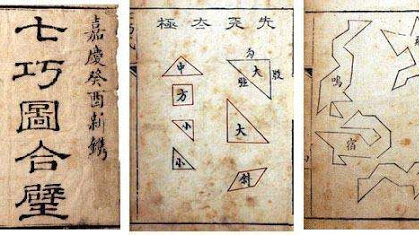 嘉慶癸酉新鐫
七巧圖合璧
先天太極
大
股
大
斜
中
方
小
小
鳴
宿